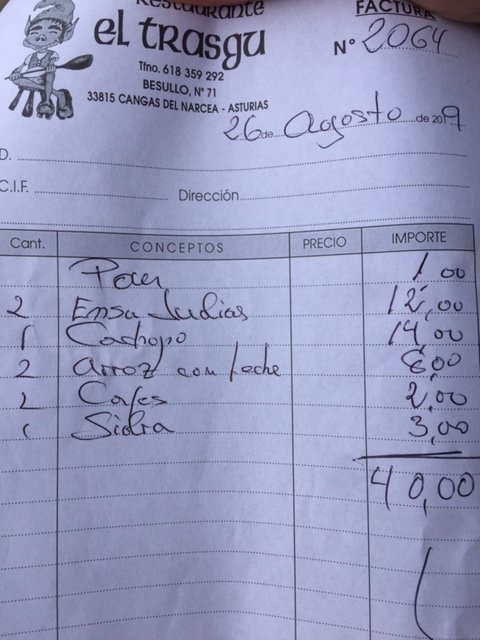 Restaurante
el trasgu
Tfno. 618 359 292
BESULLO, Nº 71
33815 CANGAS DEL NARCEA - ASTURIAS
FACTURA
Nº 2064
26 de Agosto de 2019
D.
C.I.F. Dirección
Cant. CONCEPTOS PRECIO IMPORTE
Pan 1,00
2 Ensa Judias 12,00
1 Cachopo 14,00
2 Arroz con leche 8,00
2 Cafes 2,00
1 Sidra 3,00
40,00